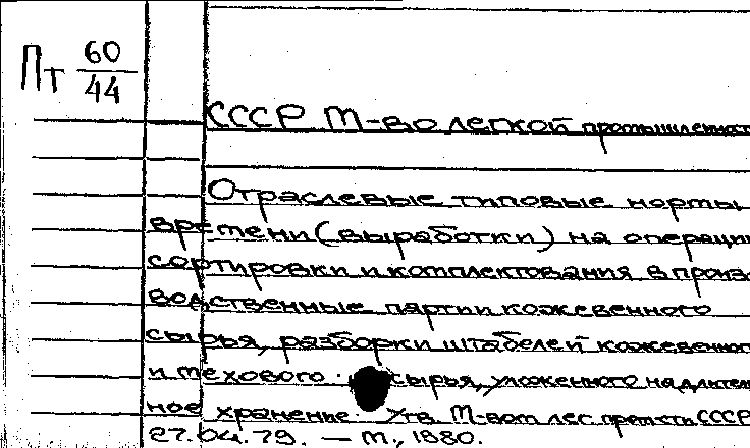 Пт 60/44
СССР М-во легкой промышленност
Отраслевые типовые нормы
времени (выработки) на операции
сортировки и комплектования в произ
водственные партии кожевенного
сырья, разборки штабелей кожевенног
и мехового сырья, уложенного на длитель
ное хранение. Утв. М-вом лег. пром-сти СССР
27.04.79. — М., 1980.